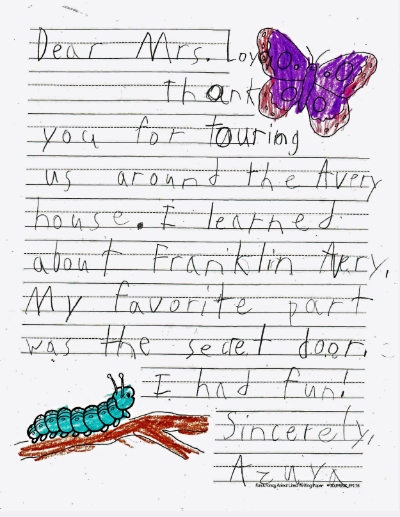 Dear Mrs. Loyd
Thank
you for touring
us around the Avery
house. I learned
about Franklin Avery.
My favorite part
was the secret door.
I had fun!
Sincerely,